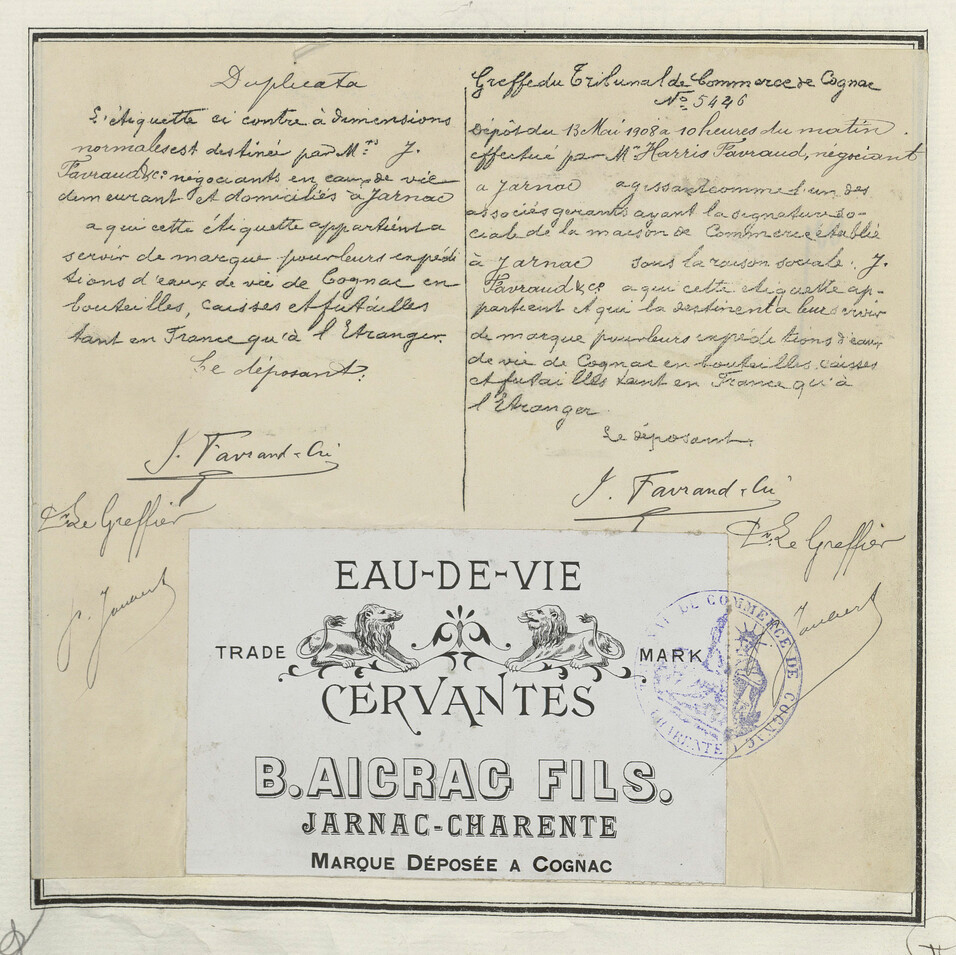 Duplicata
L'étiquette ci contre à dimensions
normales est destinée par Mrs J.
Favraud & Co négociants en eaux de vie
demeurant et domiciliés à Jarnac
a qui cette étiquette appartient a
servir de marque pour leurs expédi
tions d'eaux de vie de Cognac en
bouteilles, caisses et futailles
tant en France qu'à l'Etranger.
Le déposant:
J. Favraud & Cie
Pr. Le Greffier
Greffe du Tribunal de Commerce de Cognac
No. 5426
Dépôt du 13 Mai 1908 à 10 heures du matin.
effectué par Mr Harris Favraud, négociant
a Jarnac agissant comme l'un des
associés gérants ayant la signature so-
ciale de la maison de Commerce établie
à Jarnac sous la raison sociale: J.
Favraud & Co a qui cette étiquette ap-
partient et qui la destinent a leur servir
de marque pour leurs expéditions d'eaux
de vie de Cognac en bouteilles, caisses
et futailles tant en France qu'à
l'Etranger.
Le déposant.
J. Favraud & Cie
Pr. Le Greffier
EAU-DE-VIE
TRADE MARK
CERVANTES
B. AICRAG FILS.
JARNAC-CHARENTE
MARQUE DÉPOSÉE A COGNAC
TRIBUNAL DE COMMERCE DE COGNAC
CHARENTE